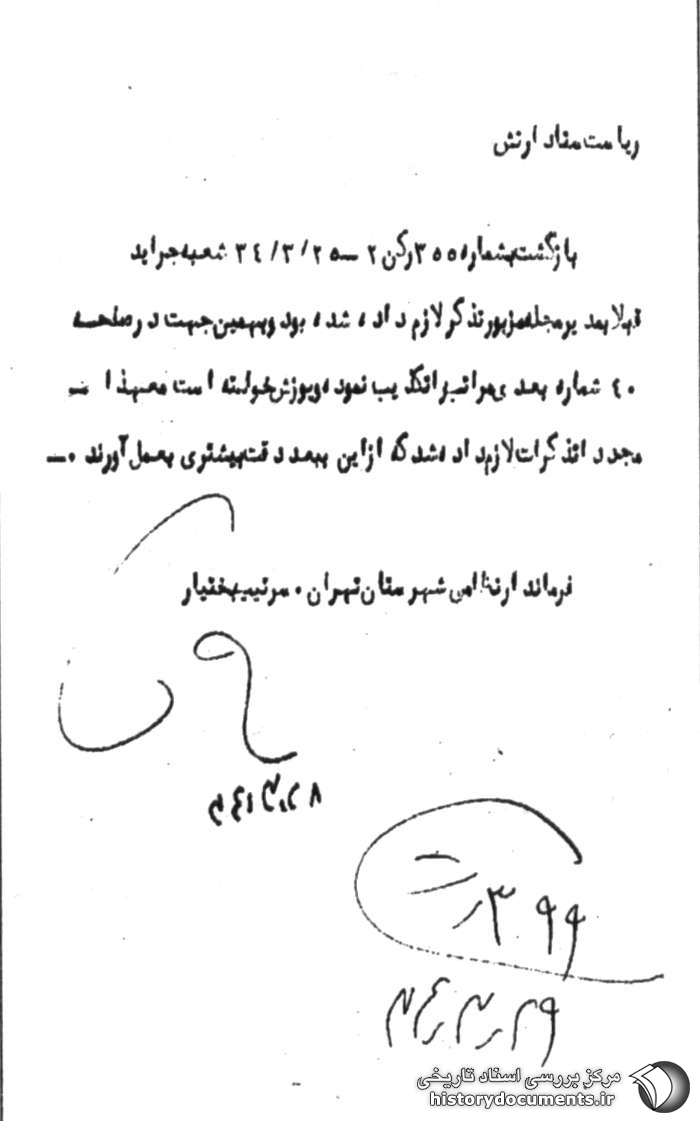 ریاست ستاد ارتش
بازگشت بشماره ۳۵۵ رکن ۲ – ۳۴/۳/۲۵ شعبه جراید
قبلا بمدیر مجله مزبور تذکر لازم داده شده بود و بهمین جهت در صفحه
۴۰ شماره بعدی مراتب را تکذیب نموده و پوزش خواسته است معهذا –
مجددا تذکرات لازم داده شد که از این ببعد دقت بیشتری بعمل آورند ۰–
فرماندار نظامی شهرستان تهران ۰ سرتیپ بختیار
۳۴/۳/۲۸
۳۴/۳/۲۹
مرکز بررسی اسناد تاریخی
historydocuments.ir